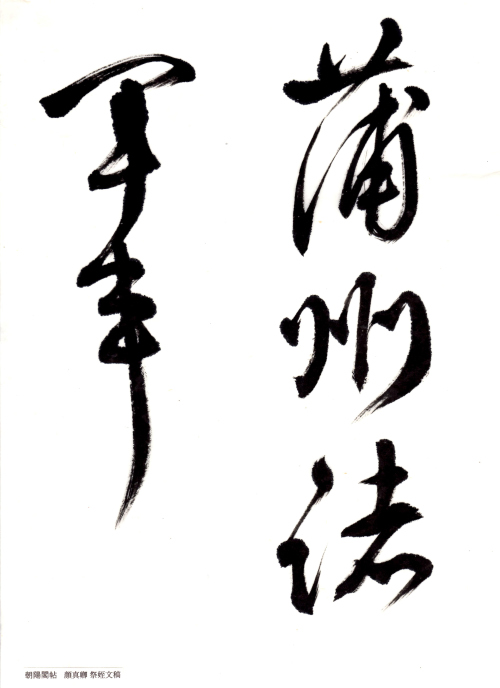 蒲州諸
軍事
朝陽閣帖 顔真卿 祭姪文稿